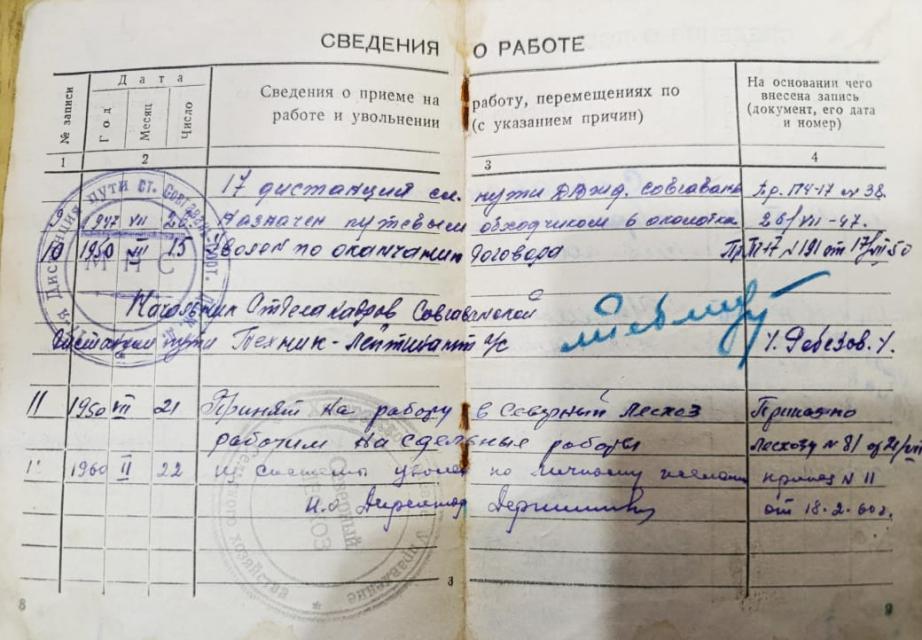 СВЕДЕНИЯ О РАБОТЕ
№ записи
Дата
Год
Месяц
Число
Сведения о приеме на работу, перемещениях по
работе и увольнении (с указанием причин)
На основании чего
внесена запись
(документ, его дата
и номер)
1 2 3 4
17 дистанций сл. пути ДВжд. Совгавань Пр. ПЧ-17 № 38
1947 VII 26 Назначен путевым обходчиком в околотка 26/VII-47.
10 1950 VII 15 по окончании договора № 191 от 17/VII 50
Начальник Отдела кадров Совгаванской
Дистанции пути Техник-
11 1950 VII 21 Принят на работу в Северный Лесхоз Приказ по
рабочим на сдельные работы Лесхозу № 81 от 21/VII
1960 II 22 из системы уволен по личному желанию приказ № 11
И.о Директор от 18.2.60г.
Дистанция пути ст. Совгавань-Сорт.
МПС
Северный
лесхоз
Управление
хозяйства
3
8 9